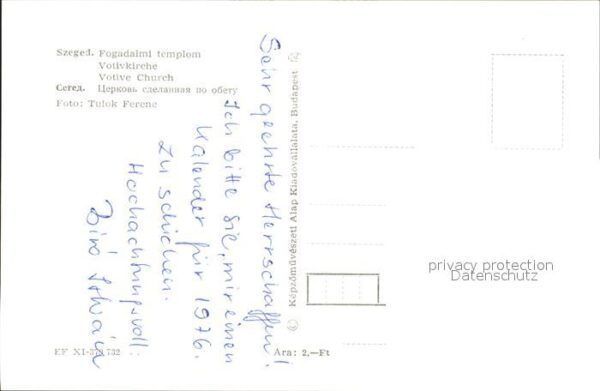 Szeged. Fogadalmi templom
Votivkirche
Votive Church
Сегед. Церковь сделанная по обету
Foto: Tulok Ferenc
Sehr geehrte Herrschaffen!
Ich bitte Sie, mir einen
Kalender für 1976.
zu schicken.
Hochachtungsvoll
Biró István
Képzőművészeti Alap Kiadóvállalata, Budapest
privacy protection
Datenschutz
EF XI-378,732
Ára: 2,—Ft